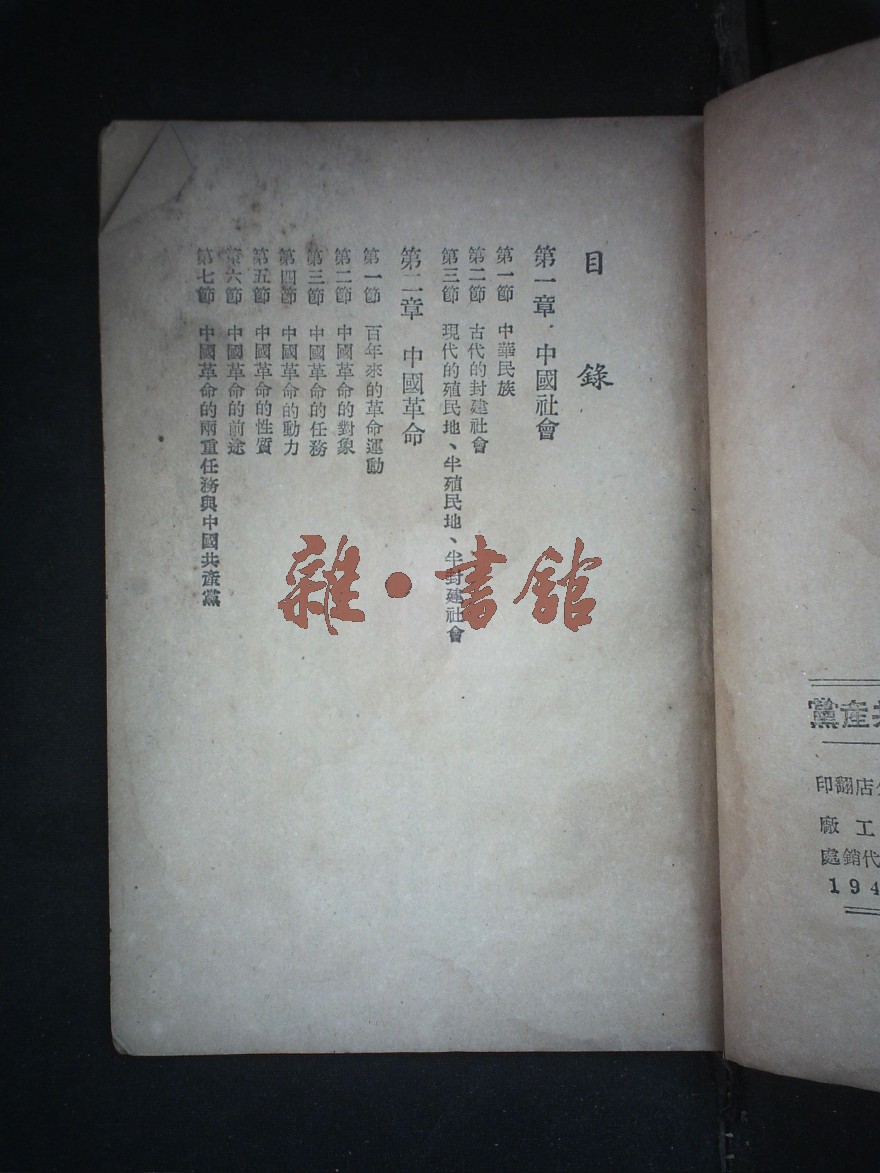 目錄
第一章 · 中國社會
第一節 中華民族
第二節 古代的封建社會
第三節 現代的殖民地、半殖民地、半封建社會
第二章 中國革命
第一節 百年來的革命運動
第二節 中國革命的對象
第三節 中國革命的任務
第四節 中國革命的動力
第五節 中國革命的性質
第六節 中國革命的前途
第七節 中國革命的兩重任務與中國共產黨
雜·書館
黨產共
印翻店分
廠工
處銷代
194